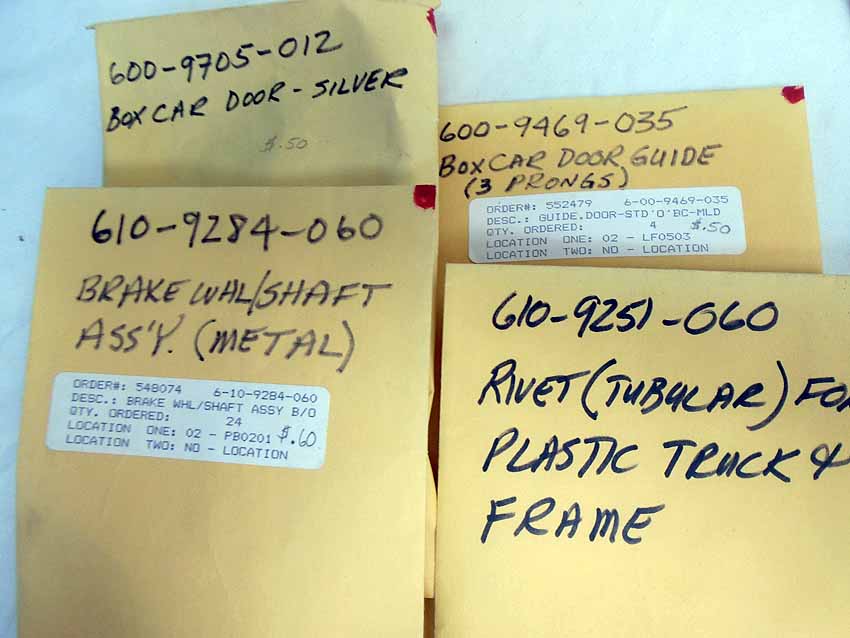 600-9705-012
BOXCAR DOOR - SILVER
$.50
600-9469-035
BOXCAR DOOR GUIDE
(3 PRONGS)
ORDER#: 552479 6-00-9469-035
DESC.: GUIDE.DOOR-STD'O'BC-MLD
QTY. ORDERED: 4 $.50
LOCATION ONE: 02 - LF0503
LOCATION TWO: NO - LOCATION
610-9284-060
BRAKE WHL/SHAFT
ASS'Y. (METAL)
ORDER#: 548074 6-10-9284-060
DESC.: BRAKE WHL/SHAFT ASSY B/O
QTY. ORDERED: 24
LOCATION ONE: 02 - PB0201 $.60
LOCATION TWO: NO - LOCATION
610-9251-060
RIVET (TUBULAR) FOR
PLASTIC TRUCK &
FRAME